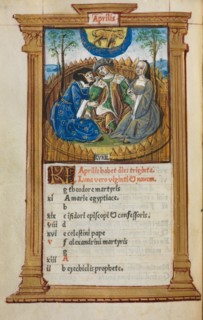 Aprilis
KL Aprilis habet dies triginta.
Luna vero viginti & novem.
g theodore martyris
xi A marie egyptiace.
b
xix c isidori episcopi & confessoris.
viii d
xvi e celestini pape
v f alexandrini martyris
g
xiii A
ii b ezechielis prophete.